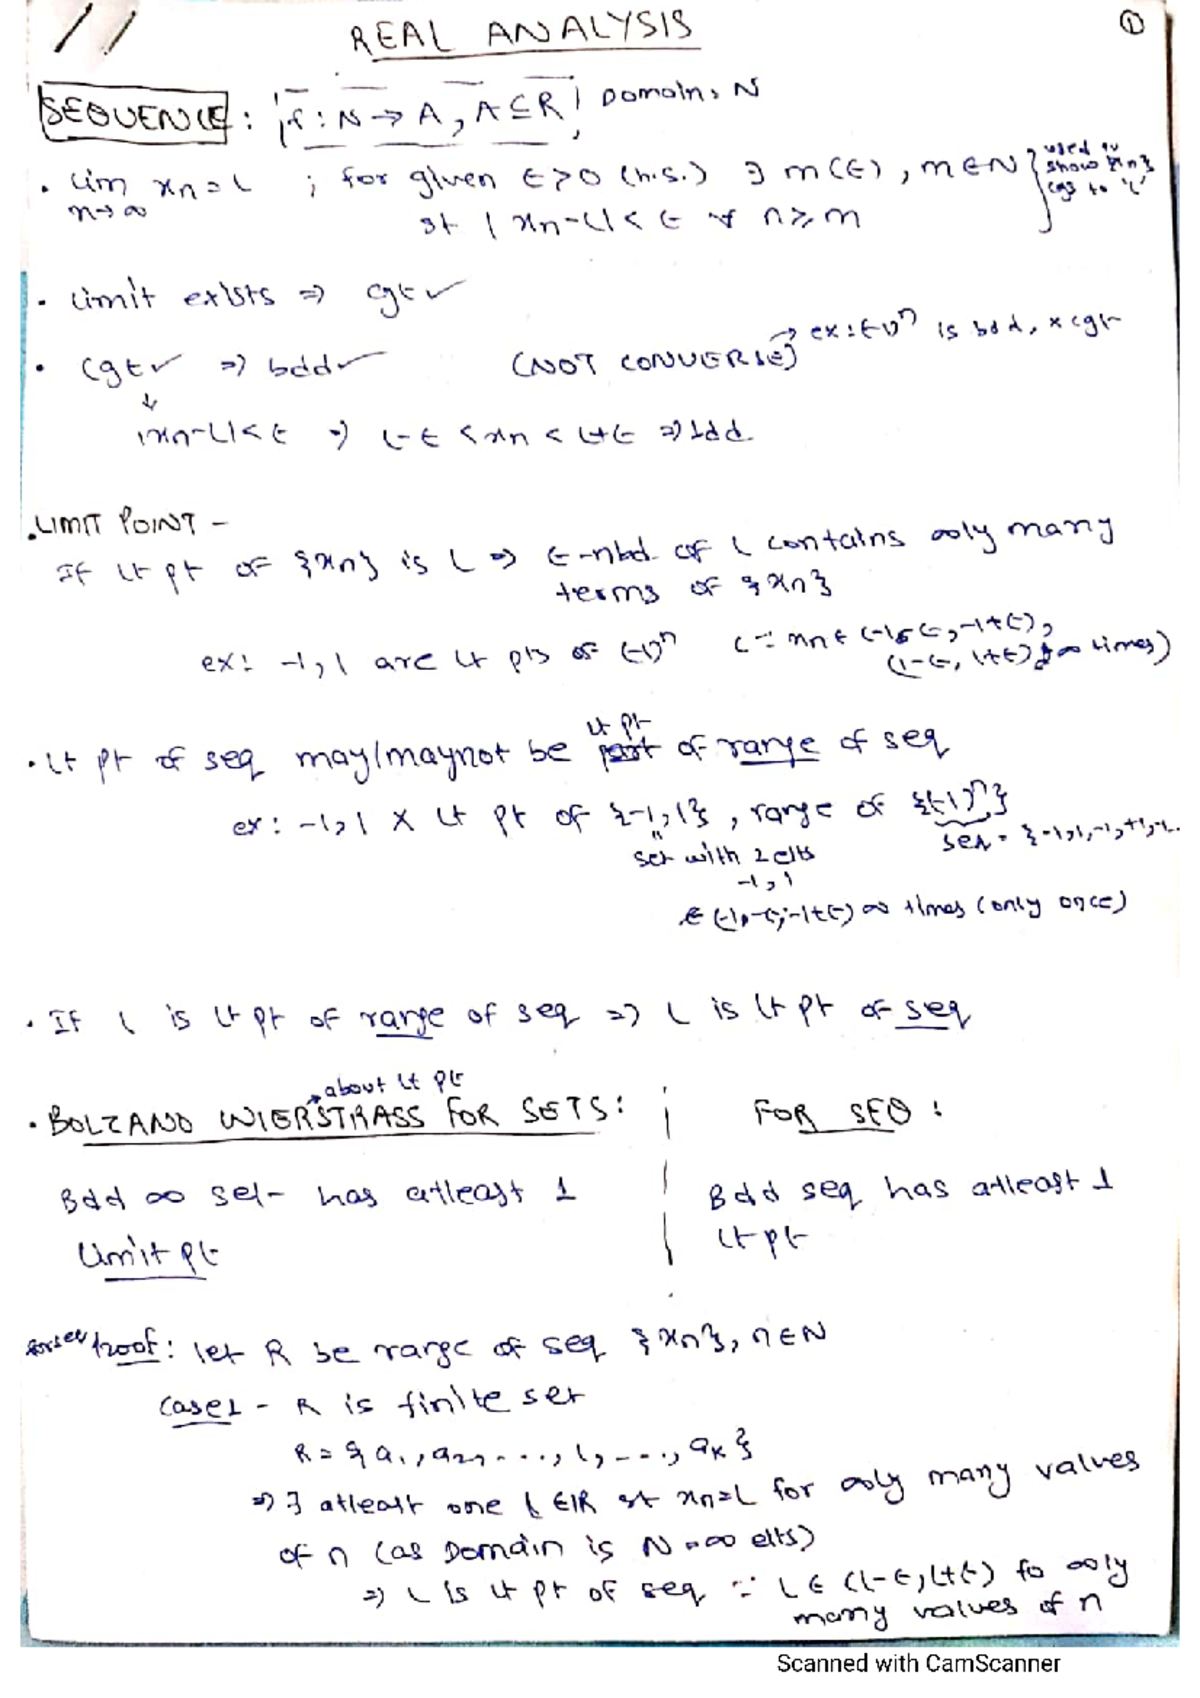 REAL ANALYSIS
①
SEQUENCE : f : N → A, A ⊆ R Domain: N
• lim xn = L ; for given ε > 0 (h.s.) ∃ m(ε), m ∈ N } used to show {xn} cgs to 'L'
n→∞
st |xn - L| < ε ∀ n ≥ m
• limit exists ⇒ cgt ✓
• Cgt ✓ ⇒ bdd ✓ (NOT CONVERSE) → ex: (-1)ⁿ is bdd, × cgt
↓
|xn - L| < ε ⇒ L - ε < xn < L + ε ⇒ bdd.
• LIMIT POINT -
If lt pt of {xn} is L ⇒ ε-nbd of L contains ∞ly many
terms of {xn}
ex: -1, 1 are lt pts of (-1)ⁿ (∵ xn ∈ (-1-ε, -1+ε),
(1-ε, 1+ε) ∞ times)
lt pt
• lt pt of seq may/maynot be part of range of seq
ex: -1, 1 × lt pt of {-1, 1}, range of {(-1)ⁿ}
seq = {-1, 1, -1, +1, -1..
set with 2 elts
-1, 1
∞ times (only once)
• If L is lt pt of range of seq ⇒ L is lt pt of seq
→ about lt pt
• BOLZANO WIERSTRASS FOR SETS :
FOR SEQ :
Bdd ∞ set has atleast 1
limit pt
Bdd seq has atleast 1
lt pt
for seq Proof : let R be range of seq {xn}, n ∈ N
Case 1 - R is finite set
R = {a1, a2, ..., L, ---, ak}
⇒ ∃ atleast one L ∈ R st xn = L for ∞ly many values
of n (as Domain is N = ∞ elts)
⇒ L is lt pt of seq ∵ L ∈ (L-ε, L+ε) fo ∞ly
many values of n
Scanned with CamScanner